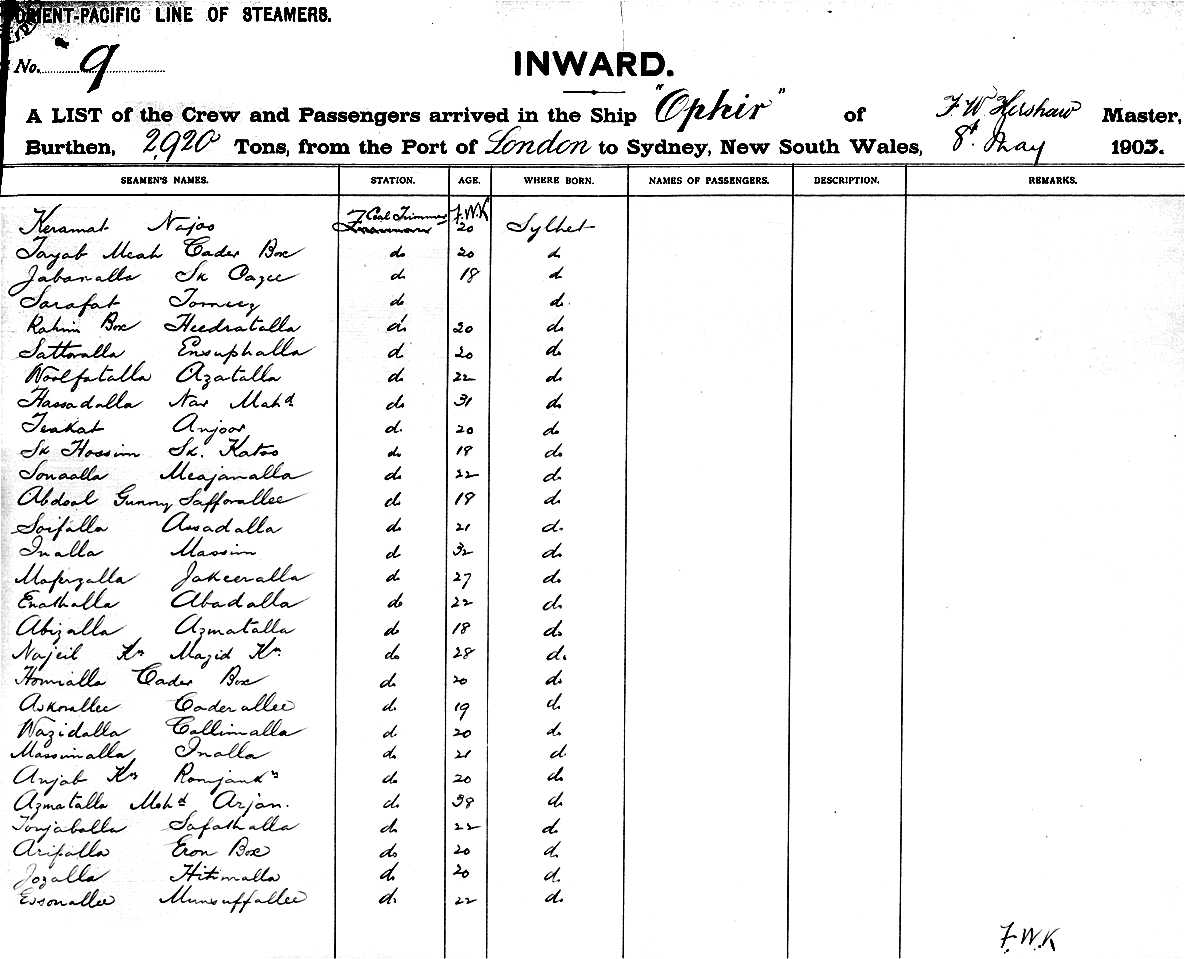 ORIENT-PACIFIC LINE OF STEAMERS.
No. 9
INWARD.
A LIST of the Crew and Passengers arrived in the Ship "Ophir" of F. W. Kershaw Master,
Burthen, 2,920 Tons, from the Port of London to Sydney, New South Wales, 8th May 1903.
SEAMEN'S NAMES. STATION. AGE. WHERE BORN. NAMES OF PASSENGERS. DESCRIPTION. REMARKS.
Coal Trimmer F.W.K
Keramat Najoo 20 Sylhet
Tayab Meah Cader Box do 20 do
Jabanalla Sk Cazee do 18 do
Sarafat do do
Rahim Box Heedratalla do 20 do
Sattoralla Ensuphalla do 20 do
Woolfatalla Azatalla do 22 do
Hassadalla Nar Mahd do 31 do
Anjoor do 20 do
Sk Hossim Sk. Katoo do 18 do
Sonaalla Meajanalla do 22 do
Abdool Gunny Safforallee do 18 do
Soifalla Assadalla do 21 do
Inalla Massim do 32 do
Mafizalla Jakeeralla do 27 do
Enathalla Abadalla do 22 do
Abizalla Azmatalla do 18 do
Najeil Kn Mazid Kn do 28 do
Homialla Cader Box do 20 do
Askorallee Caderallee do 19 do
Wazidalla Callimalla do 20 do
Massimalla Inalla do 21 do
Anjab Kn Romjankn do 20 do
Azmatalla Mohd Arjan. do 38 do
Tonjaballa Safathalla do 22 do
Arifalla Eron Box do 20 do
Jozalla Hitimalla do 20 do
Essonallee Munsuffallee do 22 do
F.W.K